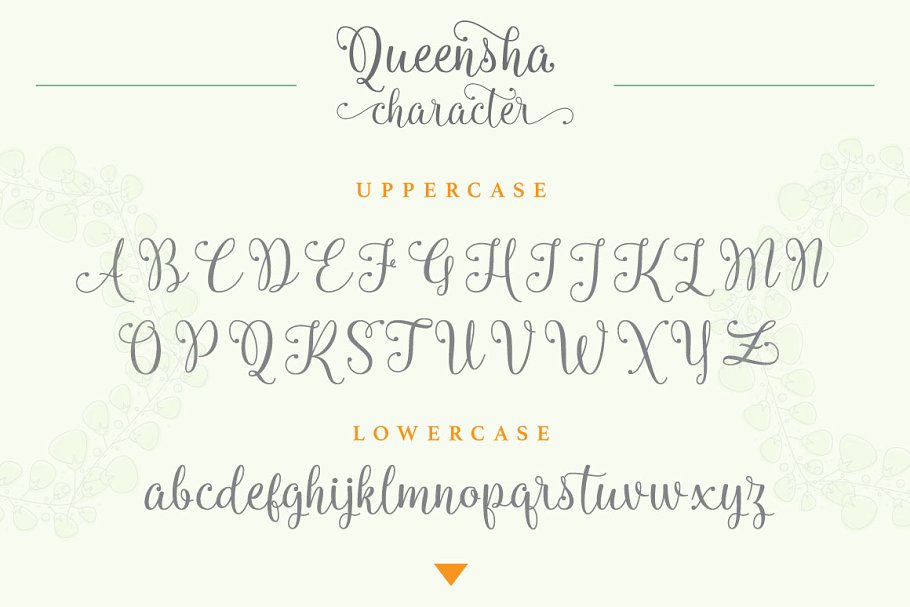 Queensha
character
UPPERCASE
ABCDEFGHIJKLMN
OPQRSTUVWXYZ
LOWERCASE
abcdefghijklmnopqrstuvwxyz